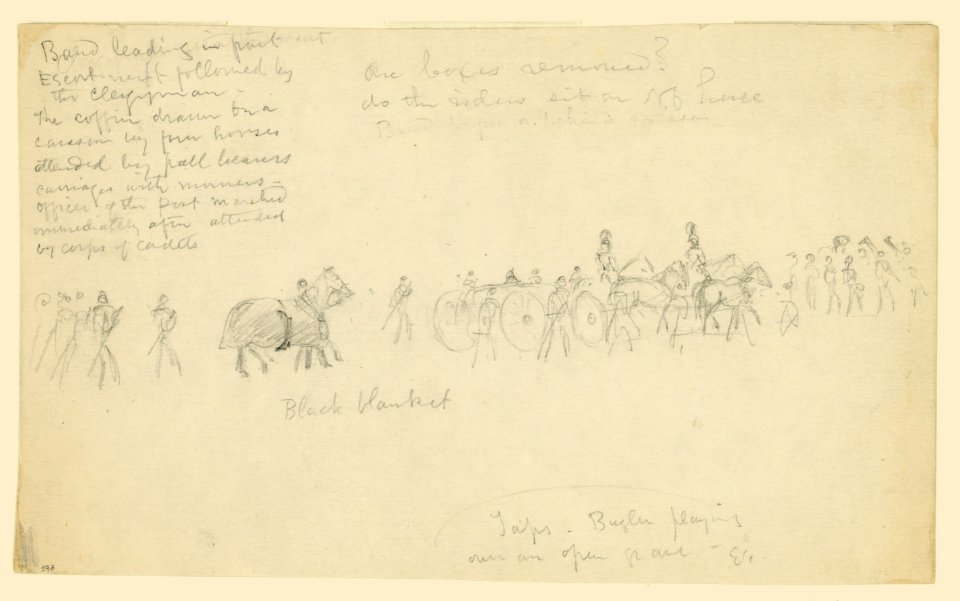 Band leading in front
Escort next followed by
the clergyman -
The coffin drawn on a
caisson by four horses
attended by pall bearers
carriages with mourners -
officers of the post marched
immediately after attended
by corps of cadets
are boxes removed?
do the riders sit on off horse
Band or behind caisson
Black blanket
Taps - Bugler playing
over an open grave - Etc.
598